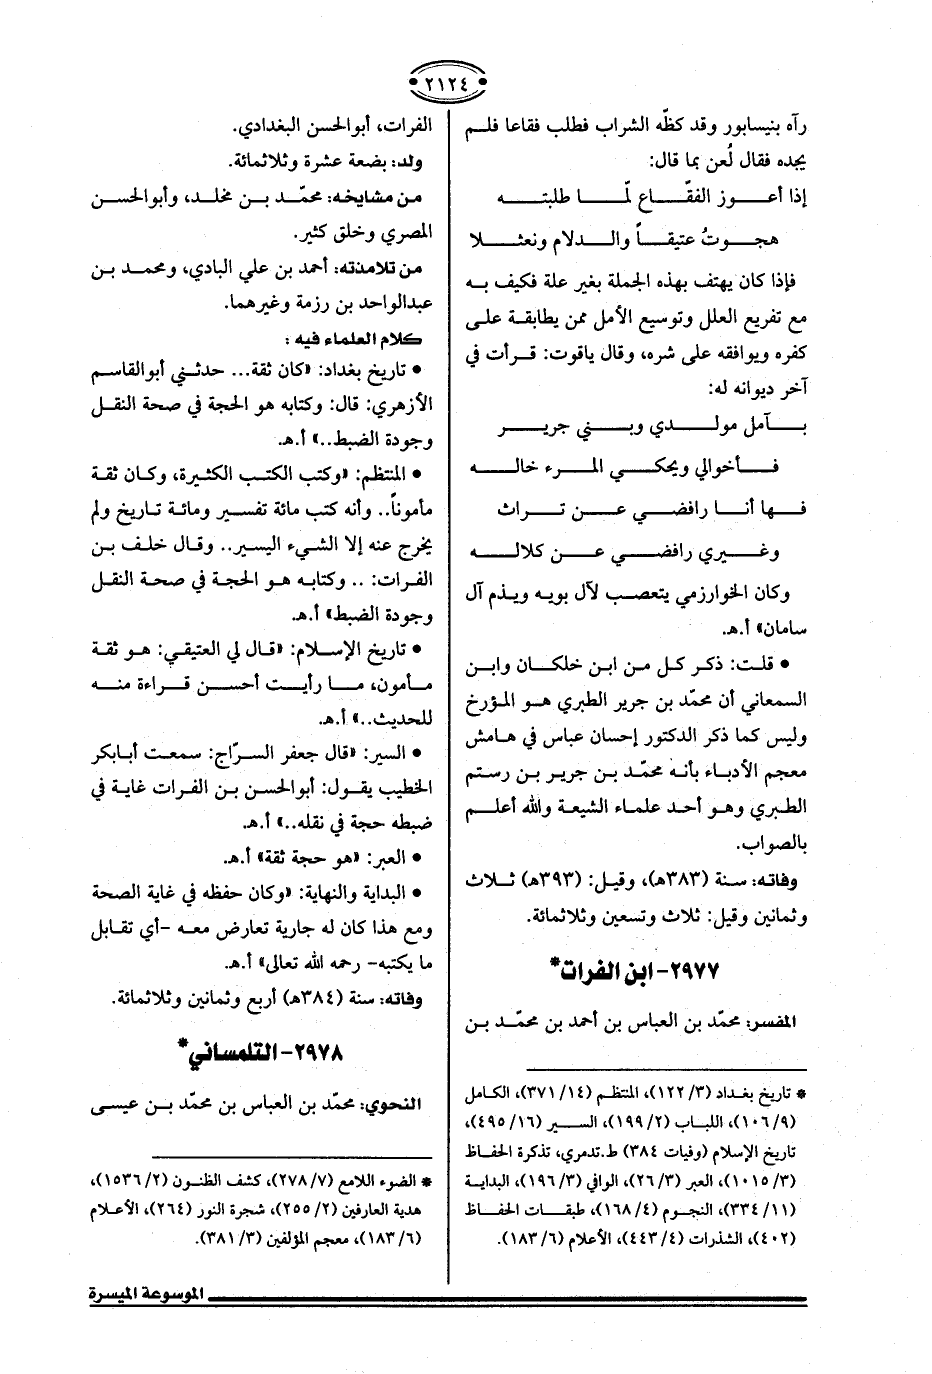 ٢١٢٤
رآه بنيسابور وقد كظّه الشراب فطلب فقاعا فلم
يجده فقال لُعن بما قال:
إذا أعوز الفقّاع لمّا طلبته
هجوتُ عتيقاً والدلام ونعثلا
فإذا كان يهتف بهذه الجملة بغير علة فكيف به
مع تفريع العلل وتوسيع الأمل ممن يطابقة على
كفره ويوافقه على شره، وقال ياقوت: قرأت في
آخر ديوانه له:
بآمل مولدي وبني جرير
فأخوالي ويحكي المرء خاله
فها أنا رافضي عن تراث
وغيري رافضي عن كلاله
وكان الخوارزمي يتعصب لآل بويه ويذم آل
سامان» أ.هـ.
• قلت: ذكر كل من ابن خلكان وابن
السمعاني أن محمّد بن جرير الطبري هو المؤرخ
وليس كما ذكر الدكتور إحسان عباس في هامش
معجم الأدباء بأنه محمّد بن جرير بن رستم
الطبري وهو أحد علماء الشيعة والله أعلم
بالصواب.
وفاته: سنة (٣٨٣هـ)، وقيل: (٣٩٣هـ) ثلاث
وثمانين وقيل: ثلاث وتسعين وثلاثمائة.
٢٩٧٧- ابن الفرات*
المفسر: محمّد بن العباس بن أحمد بن محمّد بن
* تاريخ بغداد (٣/ ١٢٢)، المنتظم (١٤/ ٣٧١)، الكامل
(٩/ ١٠٦)، اللباب (٢/ ١٩٩)، السير (١٦/ ٤٩٥)،
تاريخ الإسلام (وفيات ٣٨٤) ط.تدمري، تذكرة الحفاظ
(٣/ ١٠١٥)، العبر (٣/ ٢٦)، الوافي (٣/ ١٩٦)، البداية
(١١/ ٣٣٤)، النجوم (٤/ ١٦٨)، طبقات الحفاظ
(٤٠٢)، الشذرات (٤/ ٤٤٣)، الأعلام (٦/ ١٨٣).
الفرات، أبوالحسن البغدادي.
ولد: بضعة عشرة وثلاثمائة.
من مشايخه: محمّد بن مخلد، وأبوالحسن
المصري وخلق كثير.
من تلامذته: أحمد بن علي البادي، ومحمد بن
عبدالواحد بن رزمة وغيرهما.
كلام العلماء فيه:
• تاريخ بغداد: «كان ثقة... حدثني أبوالقاسم
الأزهري: قال: وكتابه هو الحجة في صحة النقل
وجودة الضبط..» أ.هـ.
• المنتظم: «وكتب الكتب الكثيرة، وكان ثقة
مأموناً.. وأنه كتب مائة تفسير ومائة تاريخ ولم
يخرج عنه إلا الشيء اليسير.. وقال خلف بن
الفرات: .. وكتابه هو الحجة في صحة النقل
وجودة الضبط» أ.هـ.
• تاريخ الإسلام: «قال لي العتيقي: هو ثقة
مأمون، ما رأيت أحسن قراءة منه
للحديث..» أ.هـ.
• السير: «قال جعفر السرّاج: سمعت أبابكر
الخطيب يقول: أبوالحسن بن الفرات غاية في
ضبطه حجة في نقله..» أ.هـ.
• العبر: «هو حجة ثقة» أ.هـ.
• البداية والنهاية: «وكان حفظه في غاية الصحة
ومع هذا كان له جارية تعارض معه -أي تقابل
ما يكتبه- رحمه الله تعالى» أ.هـ.
وفاته: سنة (٣٨٤هـ) أربع وثمانين وثلاثمائة.
٢٩٧٨- التلمساني*
النحوي: محمّد بن العباس بن محمّد بن عيسى
* الضوء اللامع (٧/ ٢٧٨)، كشف الظنون (٢/ ١٥٣٦)،
هدية العارفين (٢/ ٢٥٥)، شجرة النور (٢٦٤)، الأعلام
(٦/ ١٨٣)، معجم المؤلفين (٣/ ٣٨١).
الموسوعة الميسرة